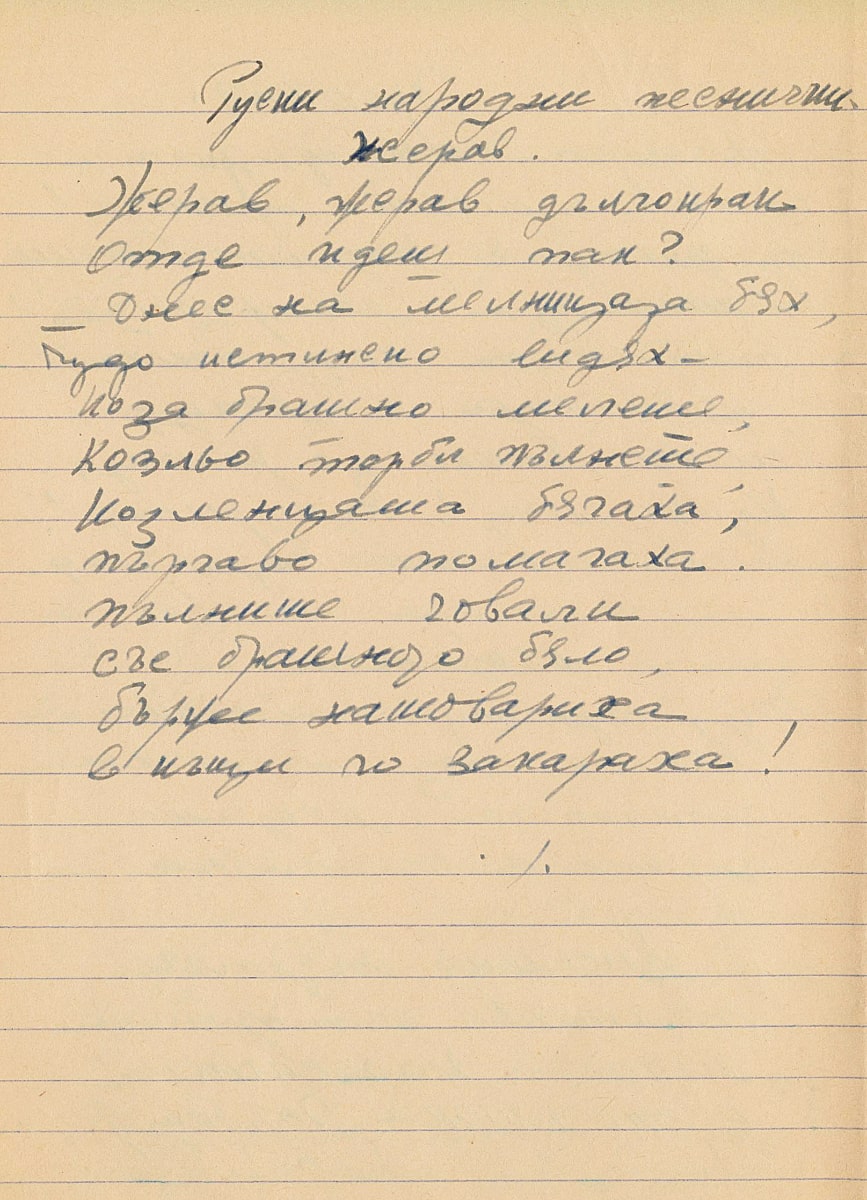 Руски народни песнички.
Жерав.
Жерав, жерав дългокрак
Отде идеш пак?
Днес на мелницата бях,
Чудо истинско видях –
Коза брашно мелеше,
Козльо торби пълнеше,
Козленцата бягаха,
пъргаво помагаха.
пълнише човали
със брашното бяло,
бързе натовариха
в къщи го закараха!